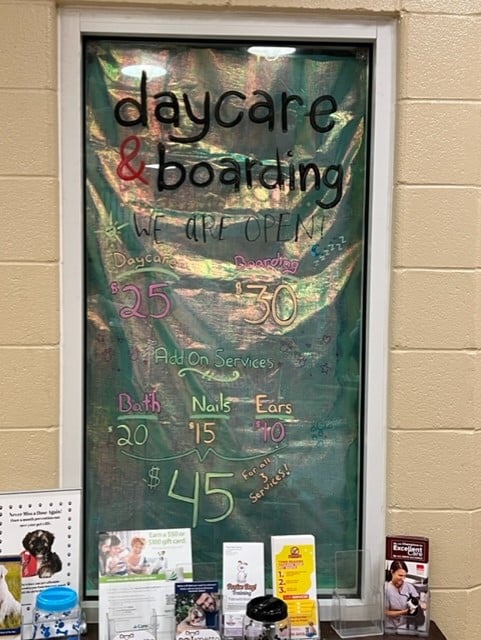 daycare
& boarding
WE ARE OPEN!
Daycare Boarding
$25 $30
Add On Services
Bath Nails Ears
$20 $15 $10
$45 For all 3 Services!
Never Miss a Dose Again!
Earn a $50 or
$100 gift card.
Training
1.
2.
3.
Excellent
Care